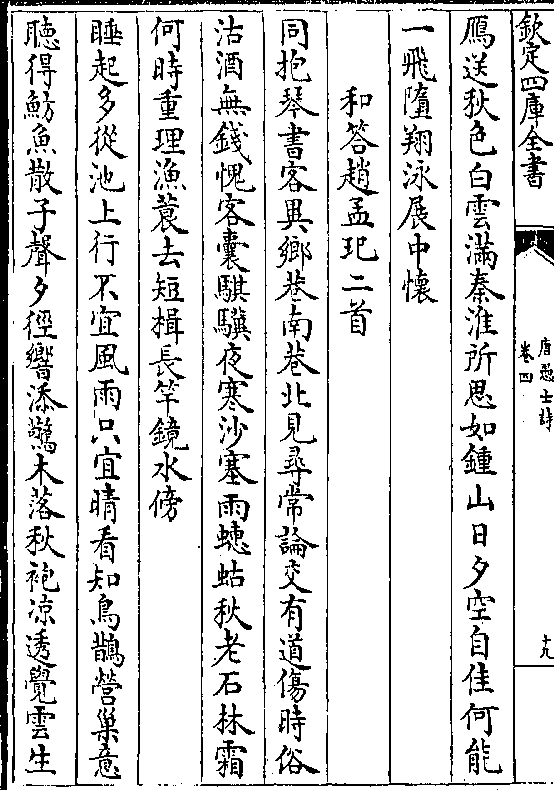 欽定四庫全書
唐愚士詩
卷四
十九
鴈送秋色白雲滿秦淮所思如鍾山日夕空自佳何能
一飛墮翔泳展中懷
和答趙孟玘二首
同抱琴書客異鄉巷南巷北見尋常論交有道傷時俗
沽酒無錢愧客囊騏驥夜寒沙塞雨蟪蛄秋老石林霜
何時重理漁蓑去短楫長竿鏡水傍
睡起多從池上行不宜風雨只宜晴看知鳥鵲營巢意
聽得魴魚散子聲夕徑響添驚木落秋袍凉透覺雲生